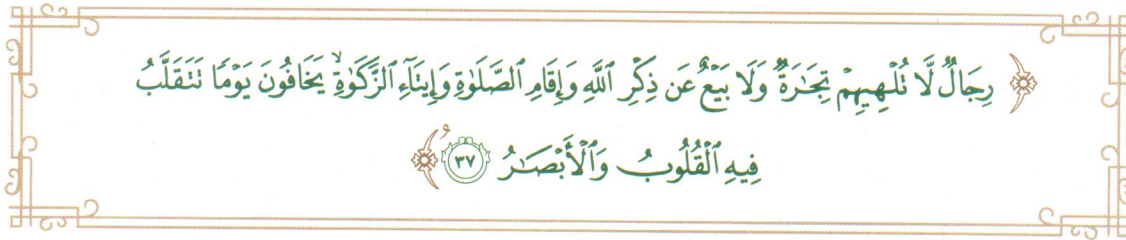 ﴿ رِجَالٌ لَّا تُلْهِيهِمْ تِجَٰرَةٌ وَلَا بَيْعٌ عَن ذِكْرِ ٱللَّهِ وَإِقَامِ ٱلصَّلَوٰةِ وَإِيتَآءِ ٱلزَّكَوٰةِ ۙ يَخَافُونَ يَوْمًا تَتَقَلَّبُ
فِيهِ ٱلْقُلُوبُ وَٱلْأَبْصَٰرُ ٣٧ ﴾